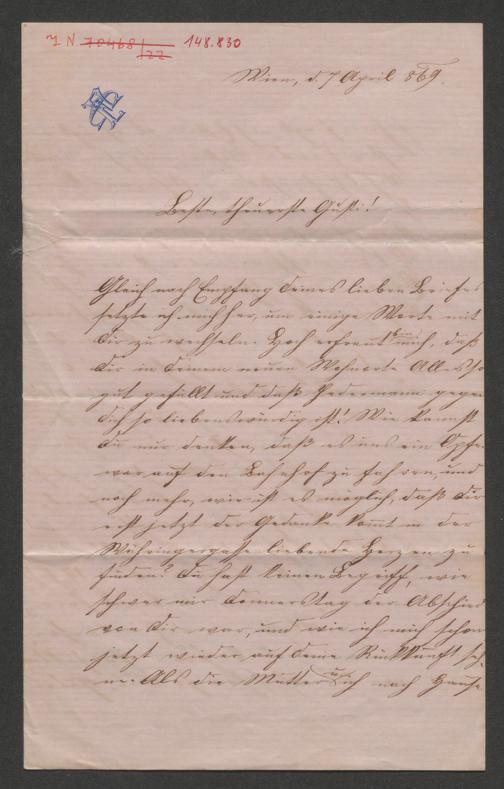 I N 70468/122 148.830
Wien, d. 7 April 869.
Beste, theuerste Gusti!
Gleich nach Empfang Deines lieben Briefes
setzte ich mich her, um einige Worte mit
Dir zu wechseln. Hoch erfreut mich, daß
Dir in Deinem neuen Wohnorte Alles so
gut gefällt und daß Jedermann gegen
Dich so liebenswürdig ist! Wie kannst
Du nur denken, daß es uns ein Opfer
war auf den Bahnhof zu fahren, und
noch mehr, wie ist es möglich, daß Dir
erst jetzt der Gedanke kommt in der
Währingergasse liebende Herzen zu
finden? Du hast keinen Begriff, wie
schwer mir Donnerstag der Abschied
von Dir war, und wie ich mich schon
jetzt wieder auf Deine Rückkunft seh-
ne. Als die Mutter u. ich nach Hause